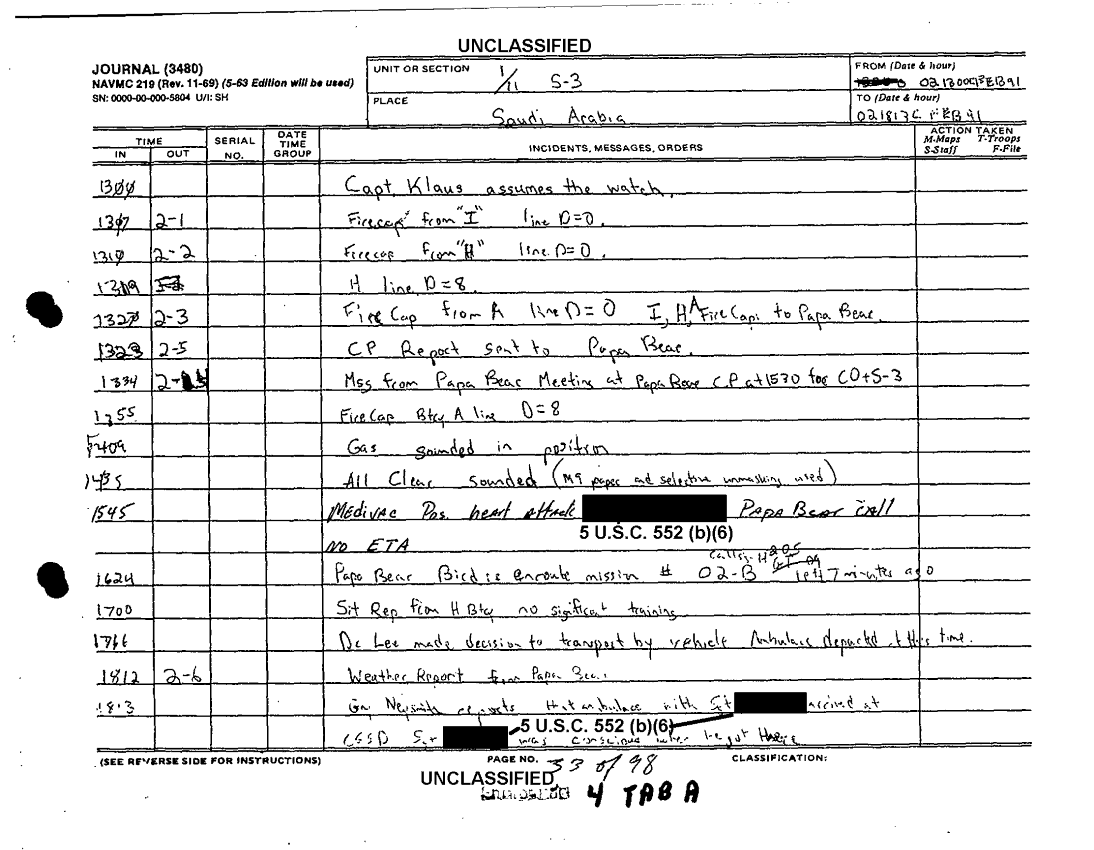 UNCLASSIFIED
JOURNAL (3480)
NAVMC 219 (Rev. 11-69) (5-63 Edition will be used)
SN: 0000-00-000-5804 U/I: SH
UNIT OR SECTION 1/11 S-3
PLACE Saudi Arabia
FROM (Date & hour)
021300 FEB91
TO (Date & hour)
021813C FEB 91
TIME
IN OUT
SERIAL NO.
DATE TIME GROUP
INCIDENTS, MESSAGES, ORDERS
ACTION TAKEN
M-Maps T-Troops
S-Staff F-File
1300 Capt. Klaus assumes the watch.
1307 2-1 Firecap from "I" line D=0.
1310 2-2 Firecap from "H" line D=0.
1319 H line D=8.
1320 2-3 Fire Cap from A line D=0 I, H, A Fire Caps to Papa Bear.
1323 2-5 CP Report sent to Papa Bear.
1334 Msg from Papa Bear Meeting at Papa Bear CP at 1530 for CO+S-3
1355 Fire Cap Btry A line D=8
1409 Gas sounded in position
1435 All Clear sounded (M9 paper and selective unmasking used)
1545 Medivac Pos. heart attack Papa Bear call
5 U.S.C. 552 (b)(6)
NO ETA
1624 Papa Bear Bird is enroute mission # 02-B left 7 minutes ago
1700 Sit Rep from H Btry no significant training
Dr Lee made decision to transport by vehicle Ambulance departed at this time.
1812 2-6 Weather Report from Papa Bear
1813 reports that ambulance with Sgt arrived at
5 U.S.C. 552 (b)(6)
CSSD Sgt was conscious when he got there
(SEE REVERSE SIDE FOR INSTRUCTIONS)
PAGE NO. 33 of 98
CLASSIFICATION:
UNCLASSIFIED
4 TAB A